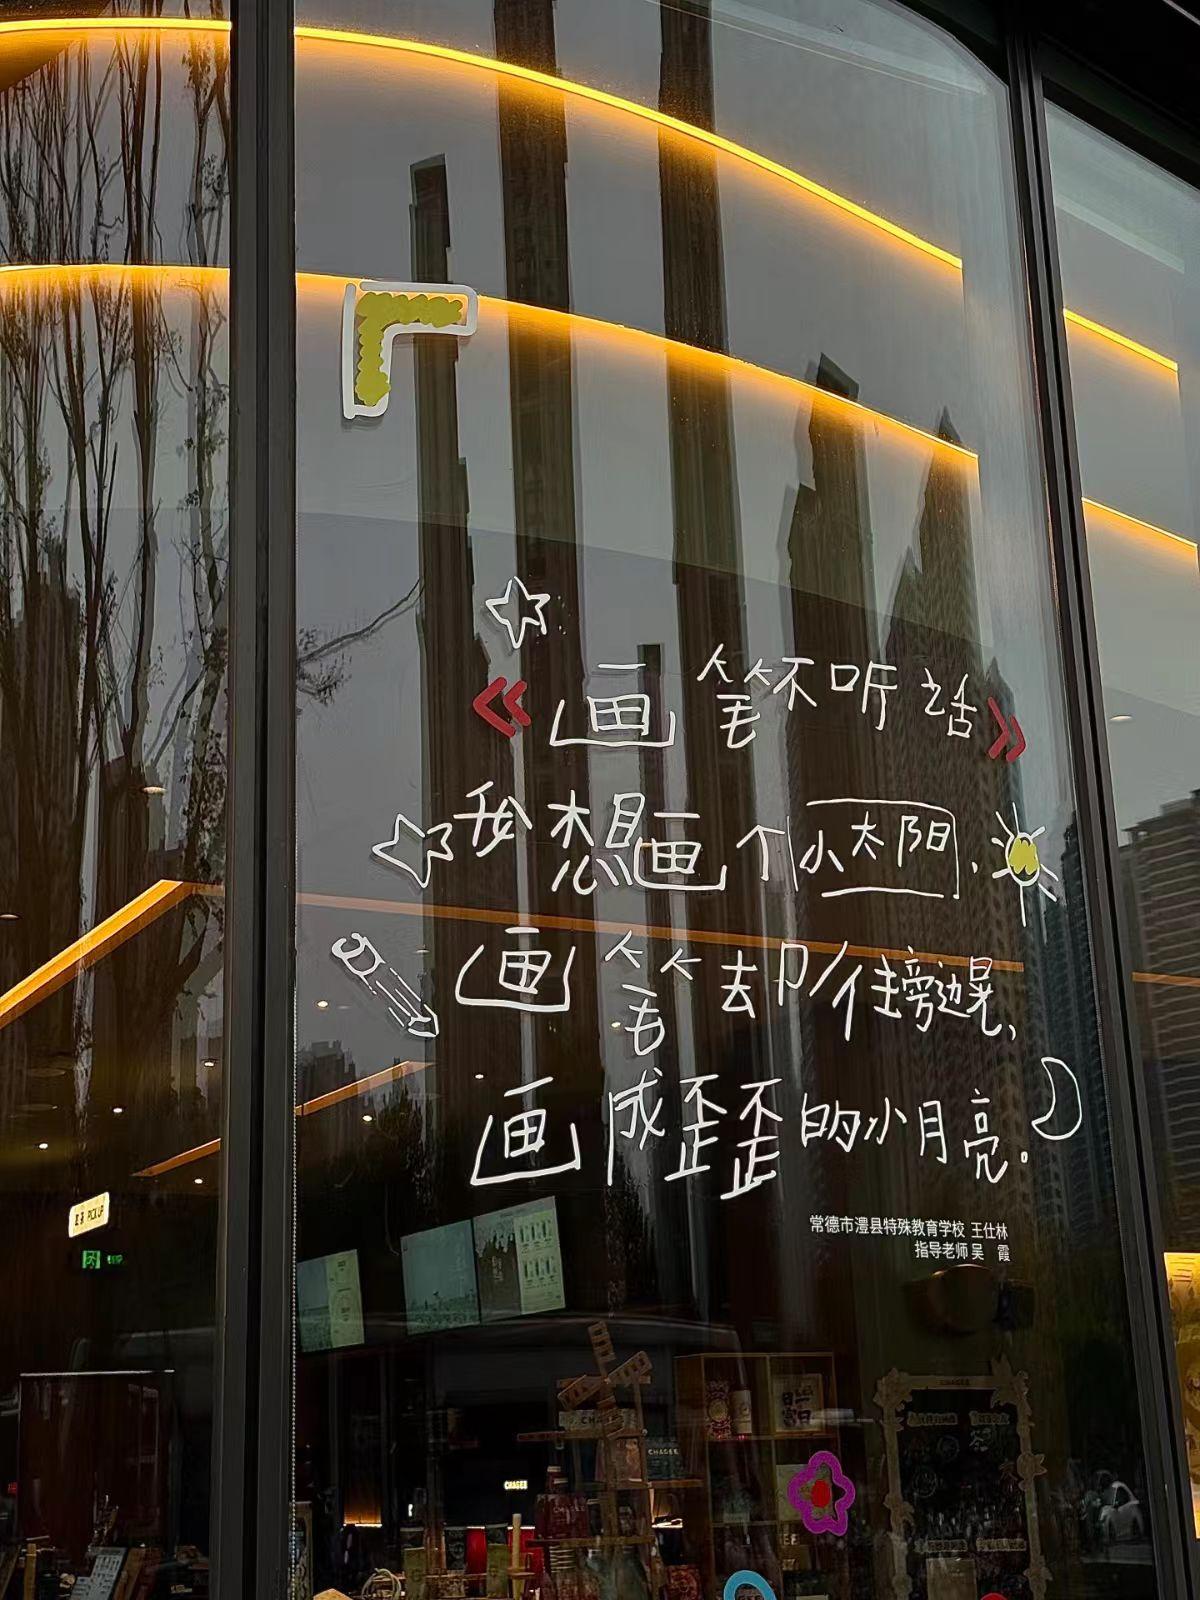 《画笔不听话》
我想画个小太阳,
画笔却往旁边晃,
画成歪歪的小月亮。
常德市澧县特殊教育学校 王仕林
指导老师 吴 霞
PICK UP
CHAGEE
CHAGEE
CHAGEE
CHAGEE